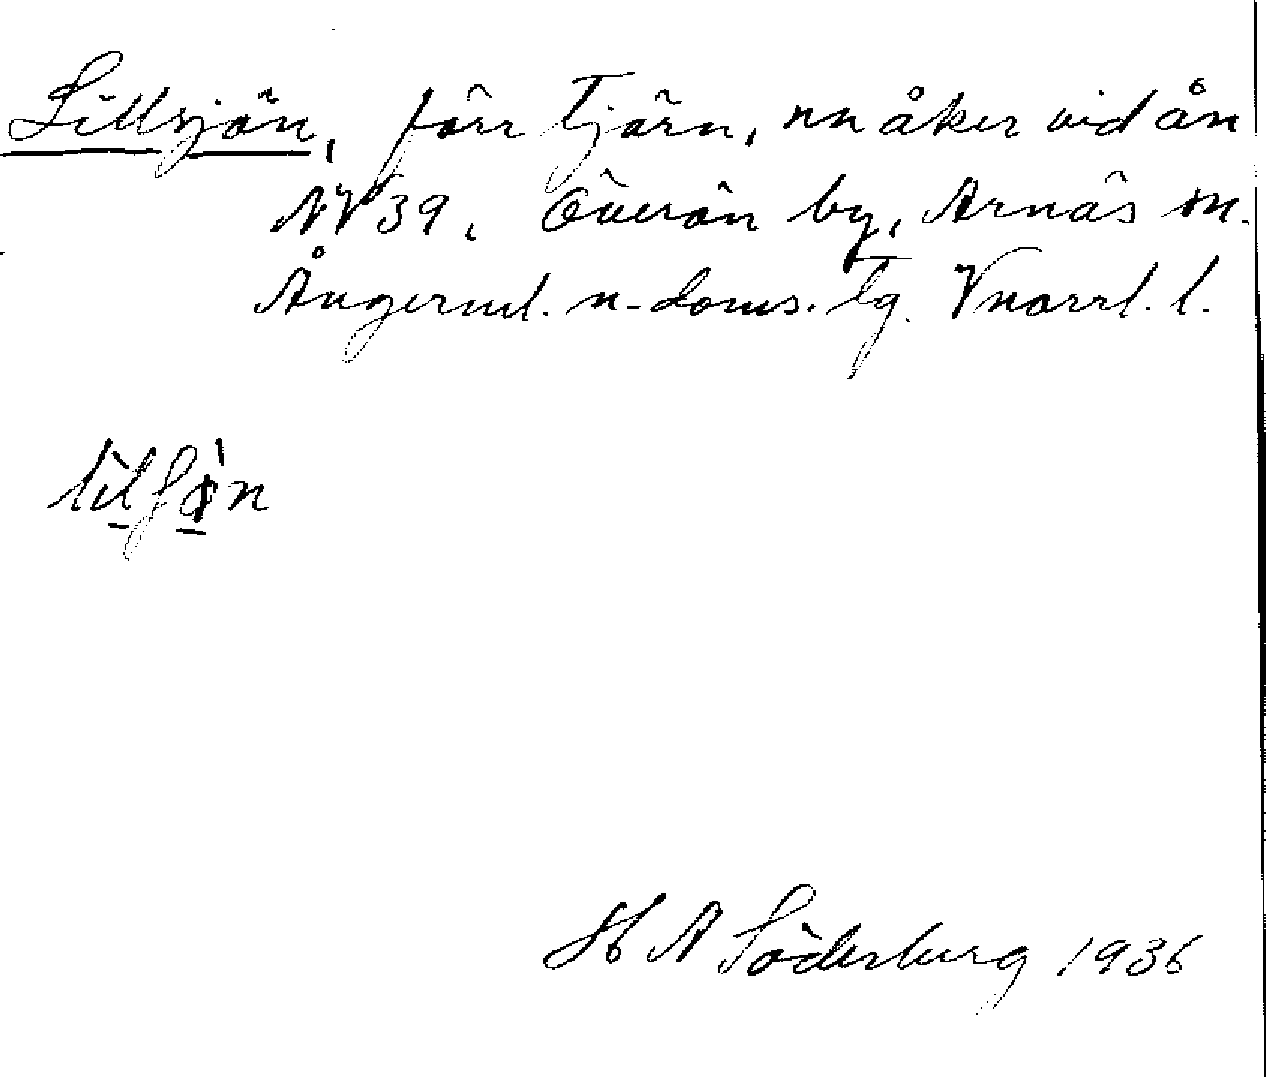 Lillsjön, förr tjärn, nu åker vid ån
NV 39. Överån by, Arnäs sn.
Ångerml. n. doms. tg. Vnorrl. l.
H A Söderberg 1936